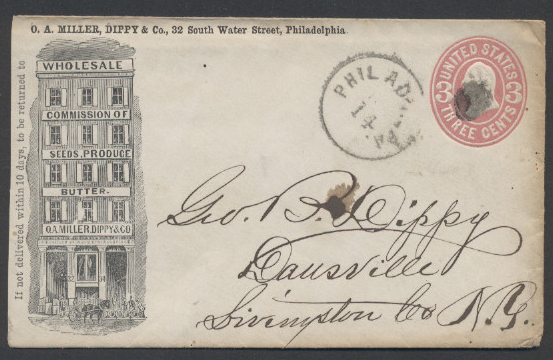 O. A. MILLER, DIPPY & Co., 32 South Water Street, Philadelphia
If not delivered within 10 days, to be returned to
WHOLESALE
COMMISSION OF
SEEDS, PRODUCE
BUTTER
O.A. MILLER, DIPPY & CO
PHILAD
14
PA.
UNITED STATES
3 3
THREE CENTS
Geo. B. Dippy
Dansville
Livingston Co N.Y.